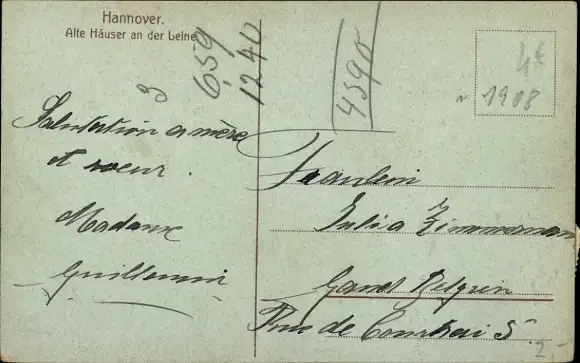 Hannover.
Alte Häuser an der Leine
659
1240
4390
4€
1908
3
Salutation a mère
et soeur.
Madame
Guillemin
Fräulein
Julia Zimmerman
Gand Belgien
Rue de Courtrai 5
2